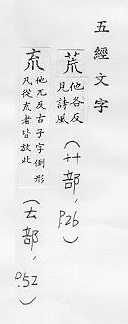 五經文字
荒
他各反
見詩風
(艹部, P.26)
㐬
他兀反古子字倒形
凡從㐬者皆放此
(𠫓部, P.52)